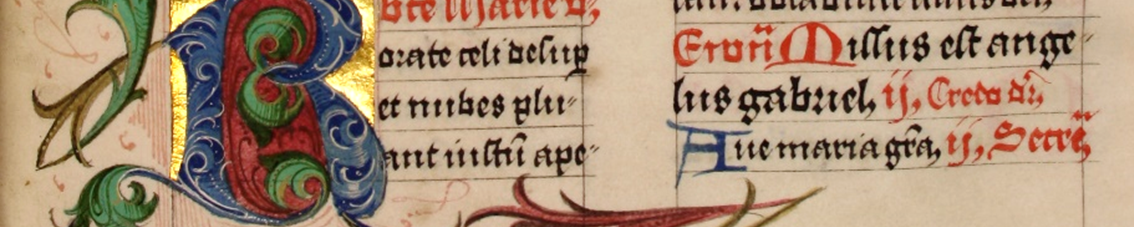 bte Marie v,
Rorate celi desup
et nubes plu-
ant iustū ape-
Missus est ange-
lus gabriel, ij, Credo dr̄,
Aue maria grā, ij, Secrē,